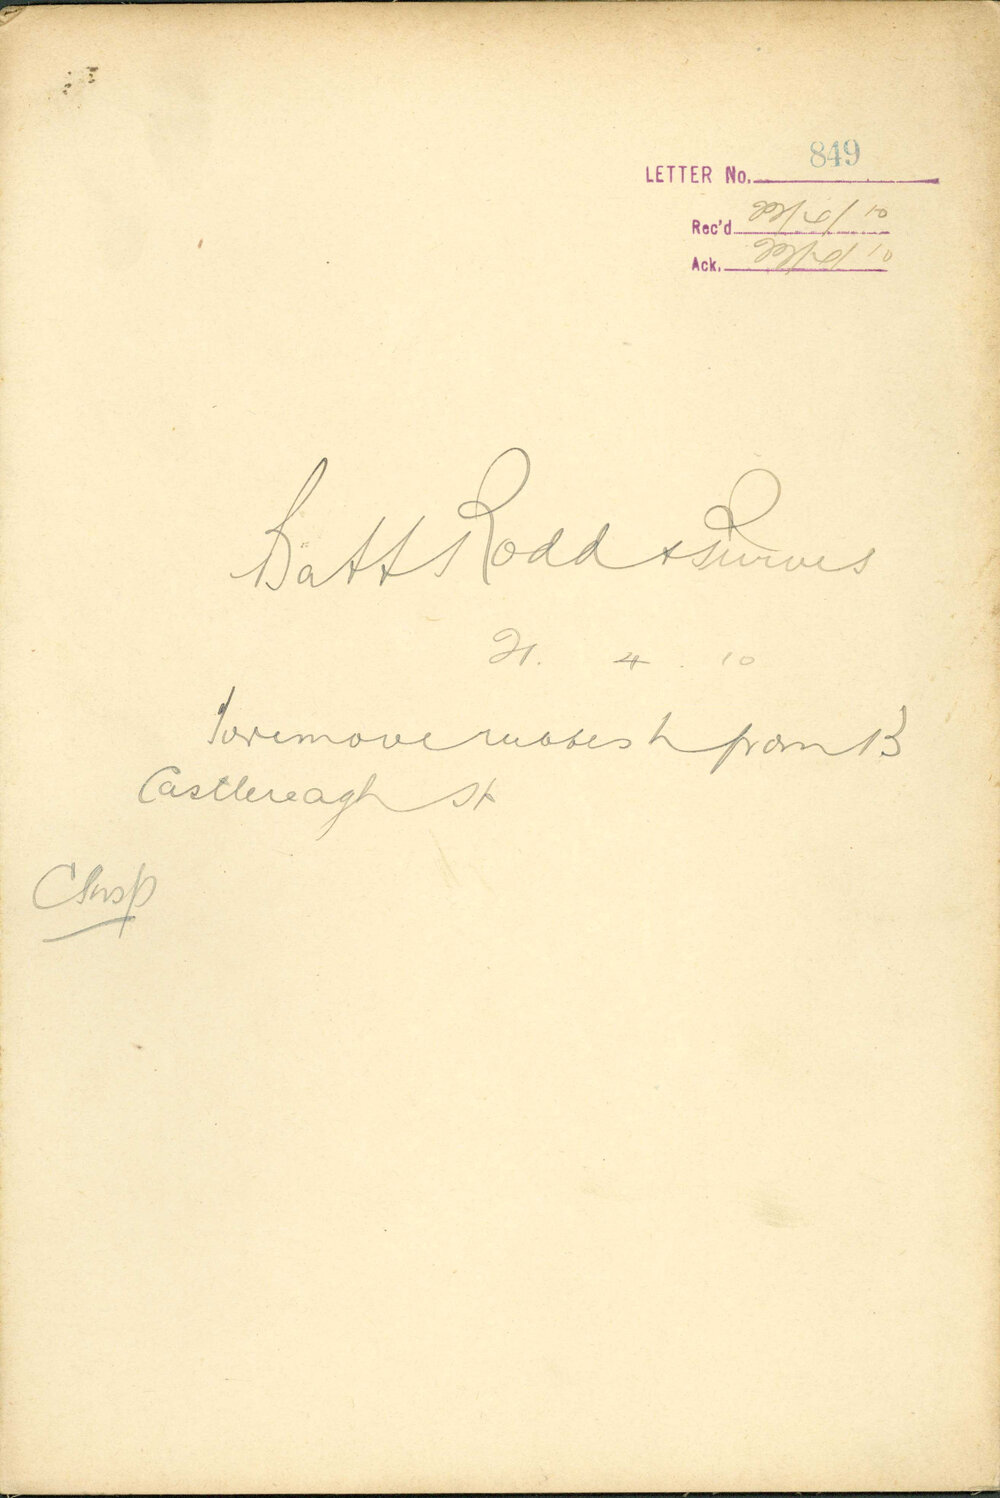 LETTER No. 849
Rec'd 22/4/10
Ack. 22/4/10
Batt Rodd & Purves
21. 4. 10
To remove rubbish from 13
Castlereagh St
CInsp